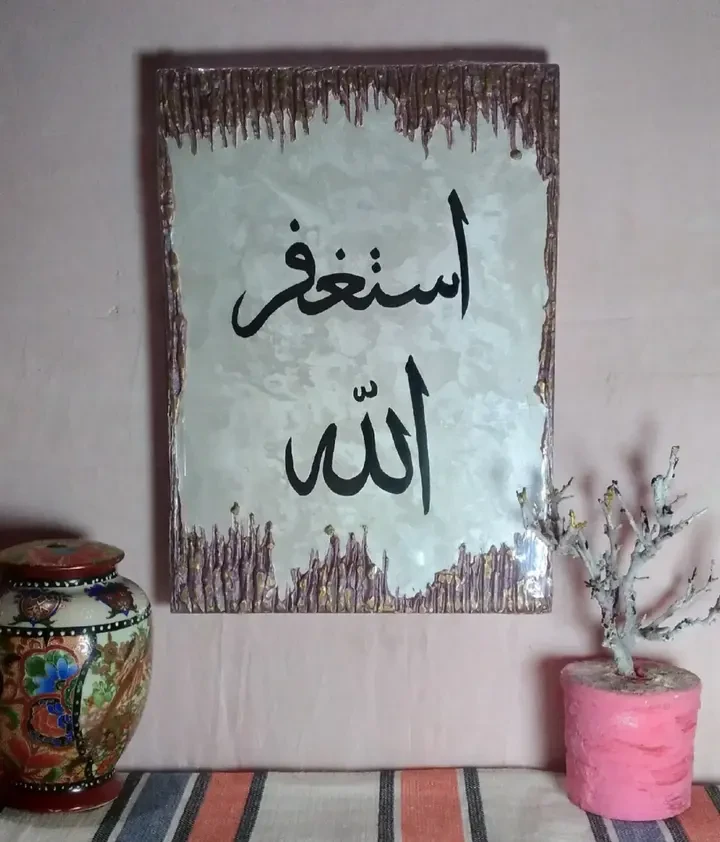 استغفر
الله